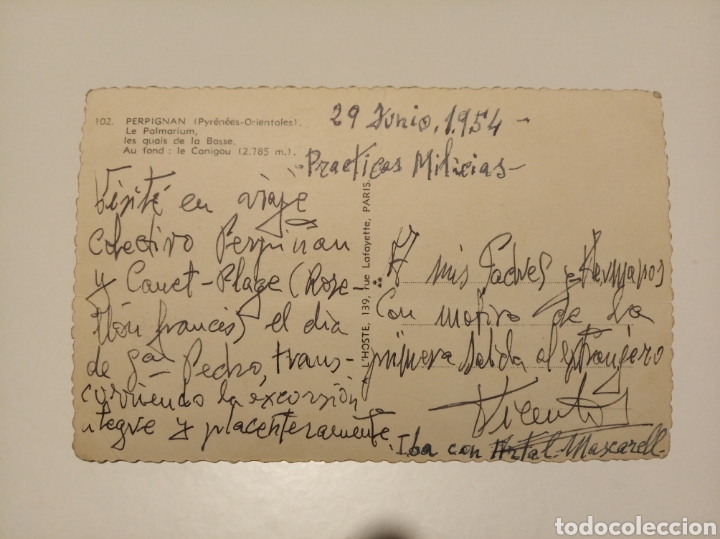 102. PERPIGNAN (Pyrénées-Orientales).
Le Palmarium,
les quais de la Basse.
Au fond : le Canigou (2.785 m.)
29 Junio, 1.954 -
- Practicas Milicias -
Visité en viaje
colectivo Perpiñan
y Canet-Plage (Rose-
llón francés) el día
de Sn Pedro, trans-
curriendo la excursión
alegre y placenteramente.
L'HOSTE, 139, rue Lafayette, PARIS
A mis Padres y Hermanos
con motivo de la
primera salida al extranjero
Vicente
Iba con Artal-Mascarell-
todocoleccion